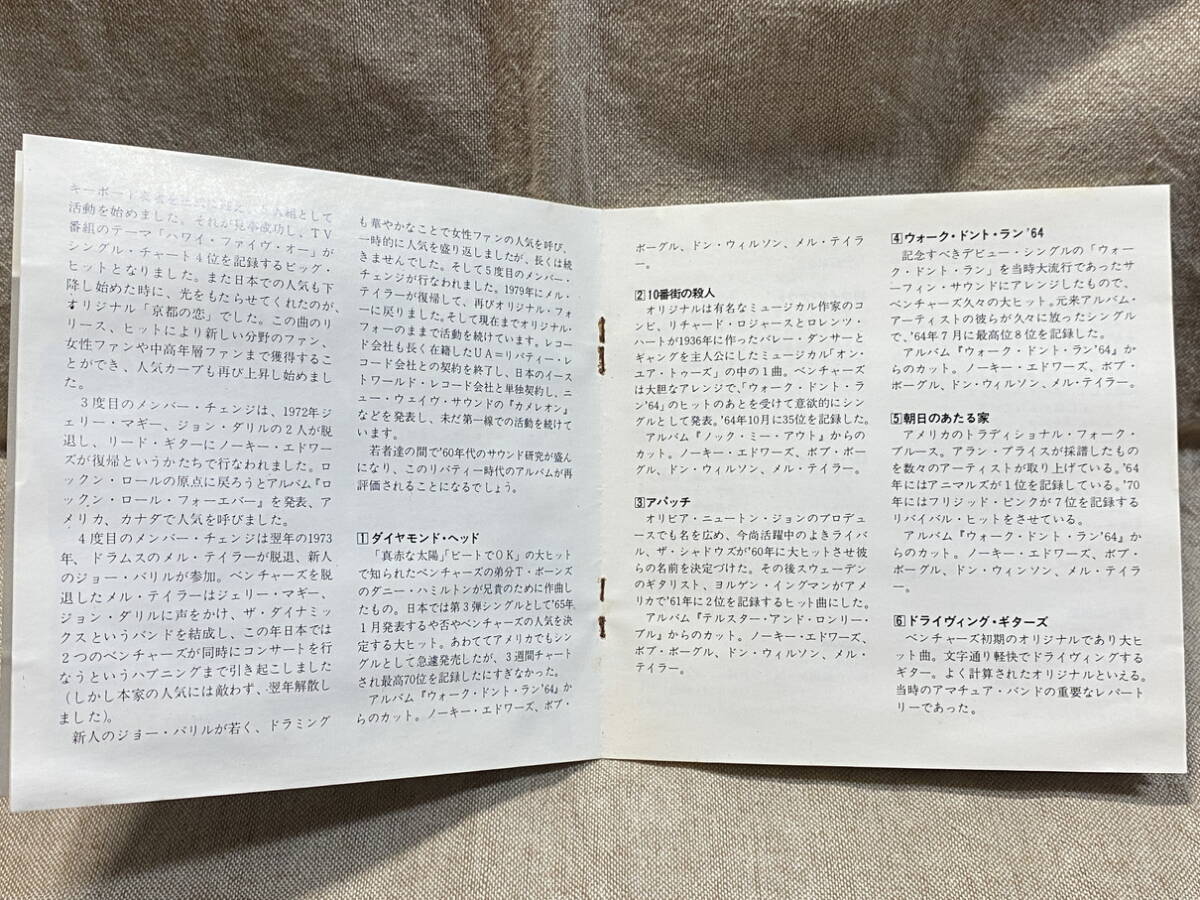 キーボード奏者を正式に迎え、5人組として
活動を始めました。それが見事成功し、TV
番組のテーマ「ハワイ・ファイヴ・オー」が
シングル・チャート4位を記録するビッグ・
ヒットとなりました。また日本での人気も下
降し始めた時に、光をもたらせてくれたのが、
オリジナル「京都の恋」でした。この曲のリ
リース、ヒットにより新しい分野のファン、
女性ファンや中高年層ファンまで獲得するこ
とができ、人気カーブも再び上昇し始めまし
た。
3度目のメンバー・チェンジは、1972年ジ
ェリー・マギー、ジョン・ダリルの2人が脱
退し、リード・ギターにノーキー・エドワー
ズが復帰というかたちで行なわれました。ロ
ックン・ロールの原点に戻ろうとアルバム『ロ
ックン・ロール・フォーエバー』を発表、ア
メリカ、カナダで人気を呼びました。
4度目のメンバー・チェンジは翌年の1973
年、ドラムスのメル・テイラーが脱退、新人
のジョー・バリルが参加。ベンチャーズを脱
退したメル・テイラーはジェリー・マギー、
ジョン・ダリルに声をかけ、ザ・ダイナミッ
クスというバンドを結成し、この年日本では
2つのベンチャーズが同時にコンサートを行
なうというハプニングまで引き起こしました
(しかし本家の人気には敵わず、翌年解散し
ました)。
新人のジョー・バリルが若く、ドラミング
も華やかなことで女性ファンの人気を呼び、
一時的に人気を盛り返しましたが、長くは続
きませんでした。そして5度目のメンバー・
チェンジが行なわれました。1979年にメル・
テイラーが復帰して、再びオリジナル・フォ
ーに戻りました。そして現在までオリジナル・
フォーのままで活動を続けています。レコー
ド会社も長く在籍したUA=リバティー・レ
コード会社との契約を終了し、日本のイース
トワールド・レコード会社と単独契約し、ニ
ュー・ウェイヴ・サウンドの『カメレオン』
などを発表し、未だ第一線での活動を続けて
います。
若者達の間で'60年代のサウンド研究が盛ん
になり、このリバティー時代のアルバムが再
評価されることになるでしょう。
1 ダイヤモンド・ヘッド
「真赤な太陽」「ビートでOK」の大ヒット
で知られたベンチャーズの弟分T・ボーンズ
のダニー・ハミルトンが兄貴のために作曲し
たもの。日本では第3弾シングルとして'65年
1月発表するや否やベンチャーズの人気を決
定する大ヒット。あわててアメリカでもシン
グルとして急遽発売したが、3週間チャート
され最高70位を記録したにすぎなかった。
アルバム『ウォーク・ドント・ラン'64』か
らのカット。ノーキー・エドワーズ、ボブ・
ボーグル、ドン・ウィルソン、メル・テイラ
ー。
2 10番街の殺人
オリジナルは有名なミュージカル作家のコ
ンビ、リチャード・ロジャースとロレンツ・
ハートが1936年に作ったバレー・ダンサーと
ギャングを主人公にしたミュージカル「オン・
ユア・トゥーズ」の中の1曲。ベンチャーズ
は大胆なアレンジで、「ウォーク・ドント・ラ
ン'64」のヒットのあとを受けて意欲的にシン
グルとして発表。'64年10月に35位を記録した。
アルバム『ノック・ミー・アウト』からの
カット。ノーキー・エドワーズ、ボブ・ボー
グル、ドン・ウィルソン、メル・テイラー。
3 アパッチ
オリビア・ニュートン・ジョンのプロデュ
ースでも名を広め、今尚活躍中のよきライバ
ル、ザ・シャドウズが'60年に大ヒットさせ彼
らの名前を決定づけた。その後スウェーデン
のギタリスト、ヨルゲン・イングマンがアメ
リカで'61年に2位を記録するヒット曲にした。
アルバム『テルスター・アンド・ロンリー・
ブル』からのカット。ノーキー・エドワーズ、
ボブ・ボーグル、ドン・ウィルソン、メル・
テイラー。
4 ウォーク・ドント・ラン'64
記念すべきデビュー・シングルの「ウォー
ク・ドント・ラン」を当時大流行であったサ
ーフィン・サウンドにアレンジしたもので、
ベンチャーズ久々の大ヒット。元来アルバム・
アーティストの彼らが久々に放ったシングル
で、'64年7月に最高位8位を記録した。
アルバム『ウォーク・ドント・ラン'64』か
らのカット。ノーキー・エドワーズ、ボブ・
ボーグル、ドン・ウィルソン、メル・テイラー。
5 朝日のあたる家
アメリカのトラディショナル・フォーク・
ブルース。アラン・プライスが採譜したもの
を数々のアーティストが取り上げている。'64
年にはアニマルズが1位を記録している。'70
年にはフリジッド・ピンクが7位を記録する
リバイバル・ヒットをさせている。
アルバム『ウォーク・ドント・ラン'64』か
らのカット。ノーキー・エドワーズ、ボブ・
ボーグル、ドン・ウィンソン、メル・テイラ
ー。
6 ドライヴィング・ギターズ
ベンチャーズ初期のオリジナルであり大ヒ
ット曲。文字通り軽快でドライヴィングする
ギター。よく計算されたオリジナルといえる。
当時のアマチュア・バンドの重要なレパート
リーであった。